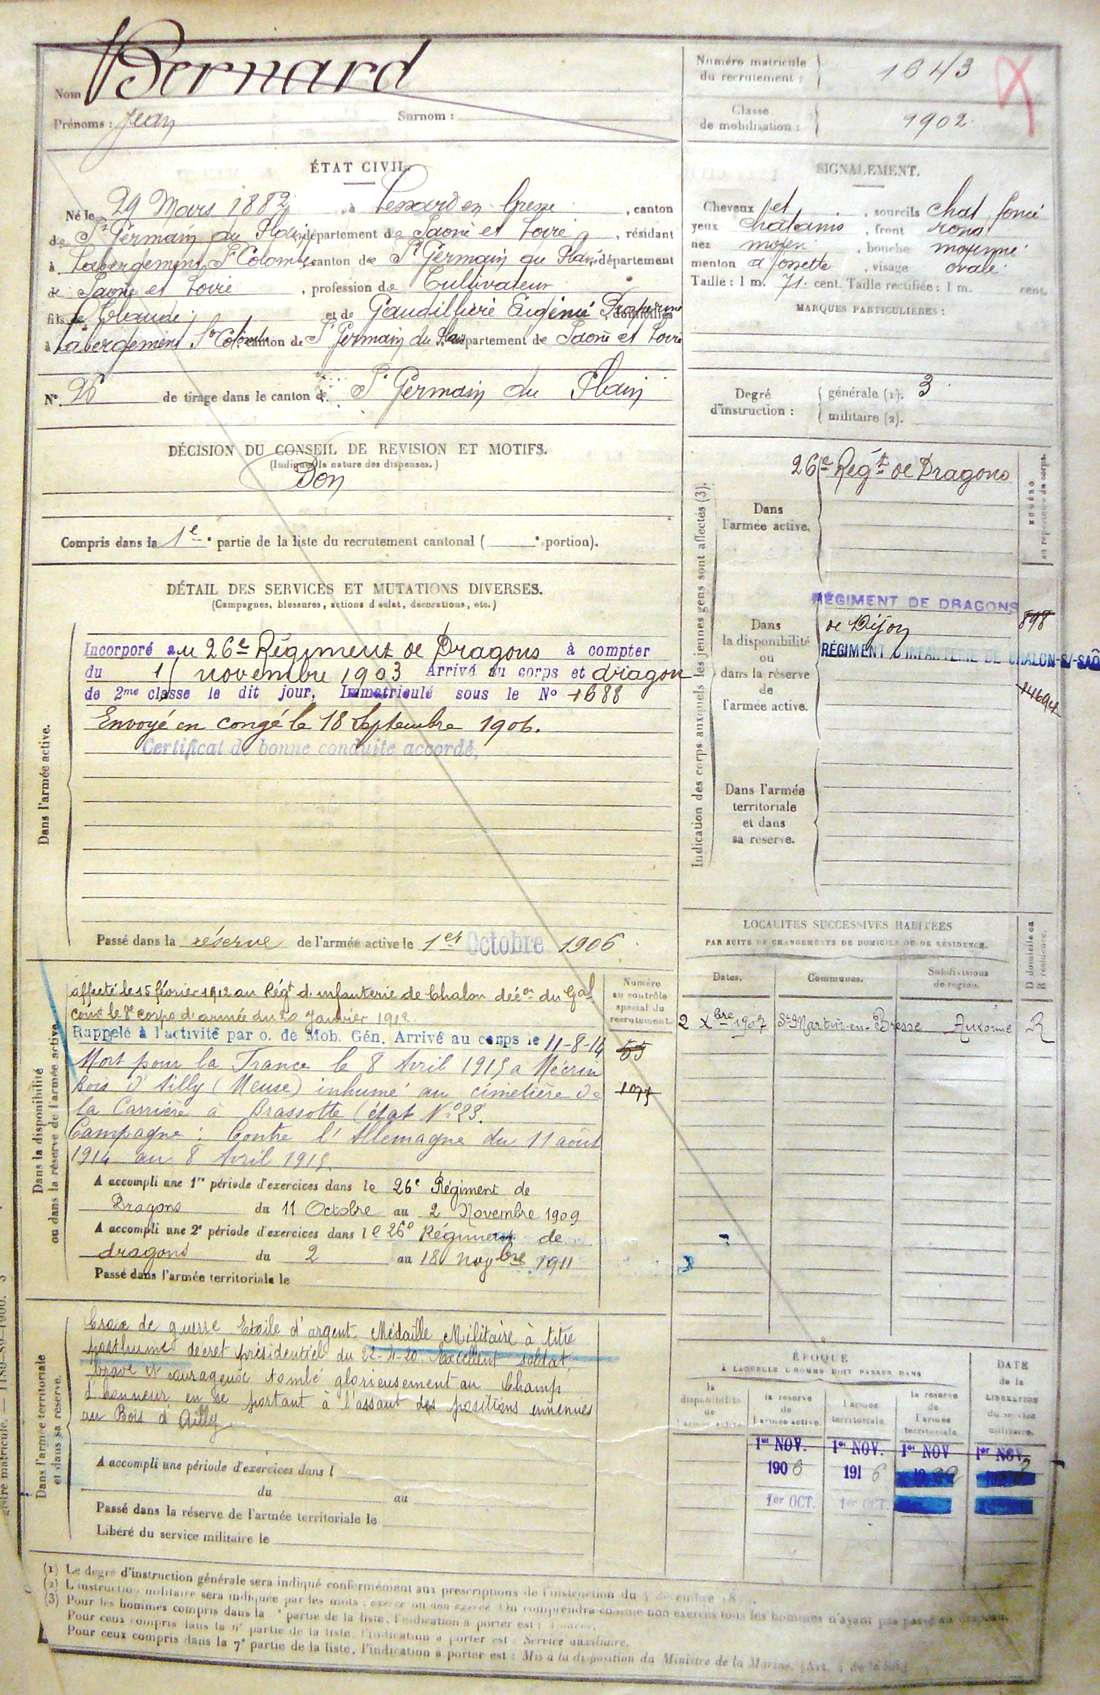 Nom Bernard
Prénoms : Jean Surnom :
Numéro matricule du recrutement : 1643
Classe de mobilisation : 1902
ÉTAT CIVIL.
Né le 29 Mars 1882, à Lessard en Bresse, canton
de St Germain du Plain, département de Saône et Loire, résidant
à Labergement Ste Colombe, canton de St Germain du Plain, département
de Saône et Loire, profession de Cultivateur
fils de Claude et de Gaudillière Eugénie
à Labergement Ste Colombe canton de St Germain du Plain département de Saône et Loire
N° 26 de tirage dans le canton de St Germain du Plain
SIGNALEMENT.
Cheveux et, sourcils chat. foncé
yeux chatains, front rond
nez moyen, bouche moyenne
menton à fossette, visage ovale
Taille : 1 m. 71 cent. Taille rectifiée : 1 m. cent.
MARQUES PARTICULIÈRES :
Degré d'instruction : générale (1). 3
militaire (2).
DÉCISION DU CONSEIL DE REVISION ET MOTIFS.
(Indiquer la nature des dispenses.)
Bon
Compris dans la 1e partie de la liste du recrutement cantonal ( portion).
DÉTAIL DES SERVICES ET MUTATIONS DIVERSES.
(Campagnes, blessures, actions d'éclat, décorations, etc.)
Dans l'armée active.
Incorporé au 26e Régiment de Dragons à compter
du 1 novembre 1903 Arrivé au corps et dragon
de 2me classe le dit jour, Immatriculé sous le N° 1688
Envoyé en congé le 18 Septembre 1906.
Certificat de bonne conduite accordé,
Passé dans la réserve de l'armée active le 1er Octobre 1906
Indication des corps auxquels les jeunes gens sont affectés (3).
Dans l'armée active.
26e Régt de Dragons
Dans la disponibilité ou dans la réserve de l'armée active.
RÉGIMENT DE DRAGONS 898
de Dijon
RÉGIMENT D'INFANTERIE DE CHALON-S/-SAÔ
14694
Dans l'armée territoriale et dans sa réserve.
LOCALITÉS SUCCESSIVES HABITÉES
PAR SUITE DE CHANGEMENTS DE DOMICILE OU DE RÉSIDENCE.
Dates. Communes. Subdivisions de région. D domicile ou R résidence.
2 Xbre 1907 St Martin-en-Bresse Auxonne R
Dans la disponibilité ou dans la réserve de l'armée active
Numéro au contrôle spécial du recrutement.
affecté le 15 février 1912 au Régt d'infanterie de Chalon déc°n du Gal
Comt le 8e corps d'armée du 20 Janvier 1912
Rappelé à l'activité par o. de Mob. Gén. Arrivé au corps le 11-8-14
Mort pour la France le 8 Avril 1915 à Mécrin
bois d'Ailly (Meuse) inhumé au cimetière de
la Carrière à Brassotte (état N° 23.
Campagne : Contre l'Allemagne du 11 août
1914 au 8 Avril 1915.
A accompli une 1re période d'exercices dans le 26e Régiment de
Dragons du 11 Octobre au 2 Novembre 1909
A accompli une 2e période d'exercices dans le 26e Régiment de
dragons du 2 au 18 novbre 1911
Passé dans l'armée territoriale le
Dans l'armée territoriale et dans sa réserve.
Croix de guerre Etoile d'argent Médaille Militaire à titre
posthume décret présidentiel du 22-4-20. Excellent soldat
brave et courageux tombé glorieusement au Champ
d'honneur en se portant à l'assaut des positions ennemies
au Bois d'Ailly
A accompli une période d'exercices dans l
du au
Passé dans la réserve de l'armée territoriale le
Libéré du service militaire le
ÉPOQUE
À LAQUELLE L'HOMME DOIT PASSER DANS
la disponibilité de l'armée active
la réserve de l'armée active
l'armée territoriale.
la réserve de l'armée territoriale
DATE de la LIBÉRATION du service militaire.
1er NOV. 1er NOV. 1er NOV 1er NOV.
1906 1916
1er OCT. 1er OCT.
(1) Le degré d'instruction générale sera indiqué conformément aux prescriptions de l'instruction du
(2) L'instruction militaire sera indiquée par les mots : exercé ou non exercé. On comprendra comme non exercés tous les hommes n'ayant pas passé au drapeau.
(3) Pour les hommes compris dans la partie de la liste, l'indication à porter est :
Pour ceux compris dans la partie de la liste, l'indication à porter est : Service auxiliaire.
Pour ceux compris dans la 7e partie de la liste, l'indication à porter est : Mis à la disposition du Ministre de la Marine.